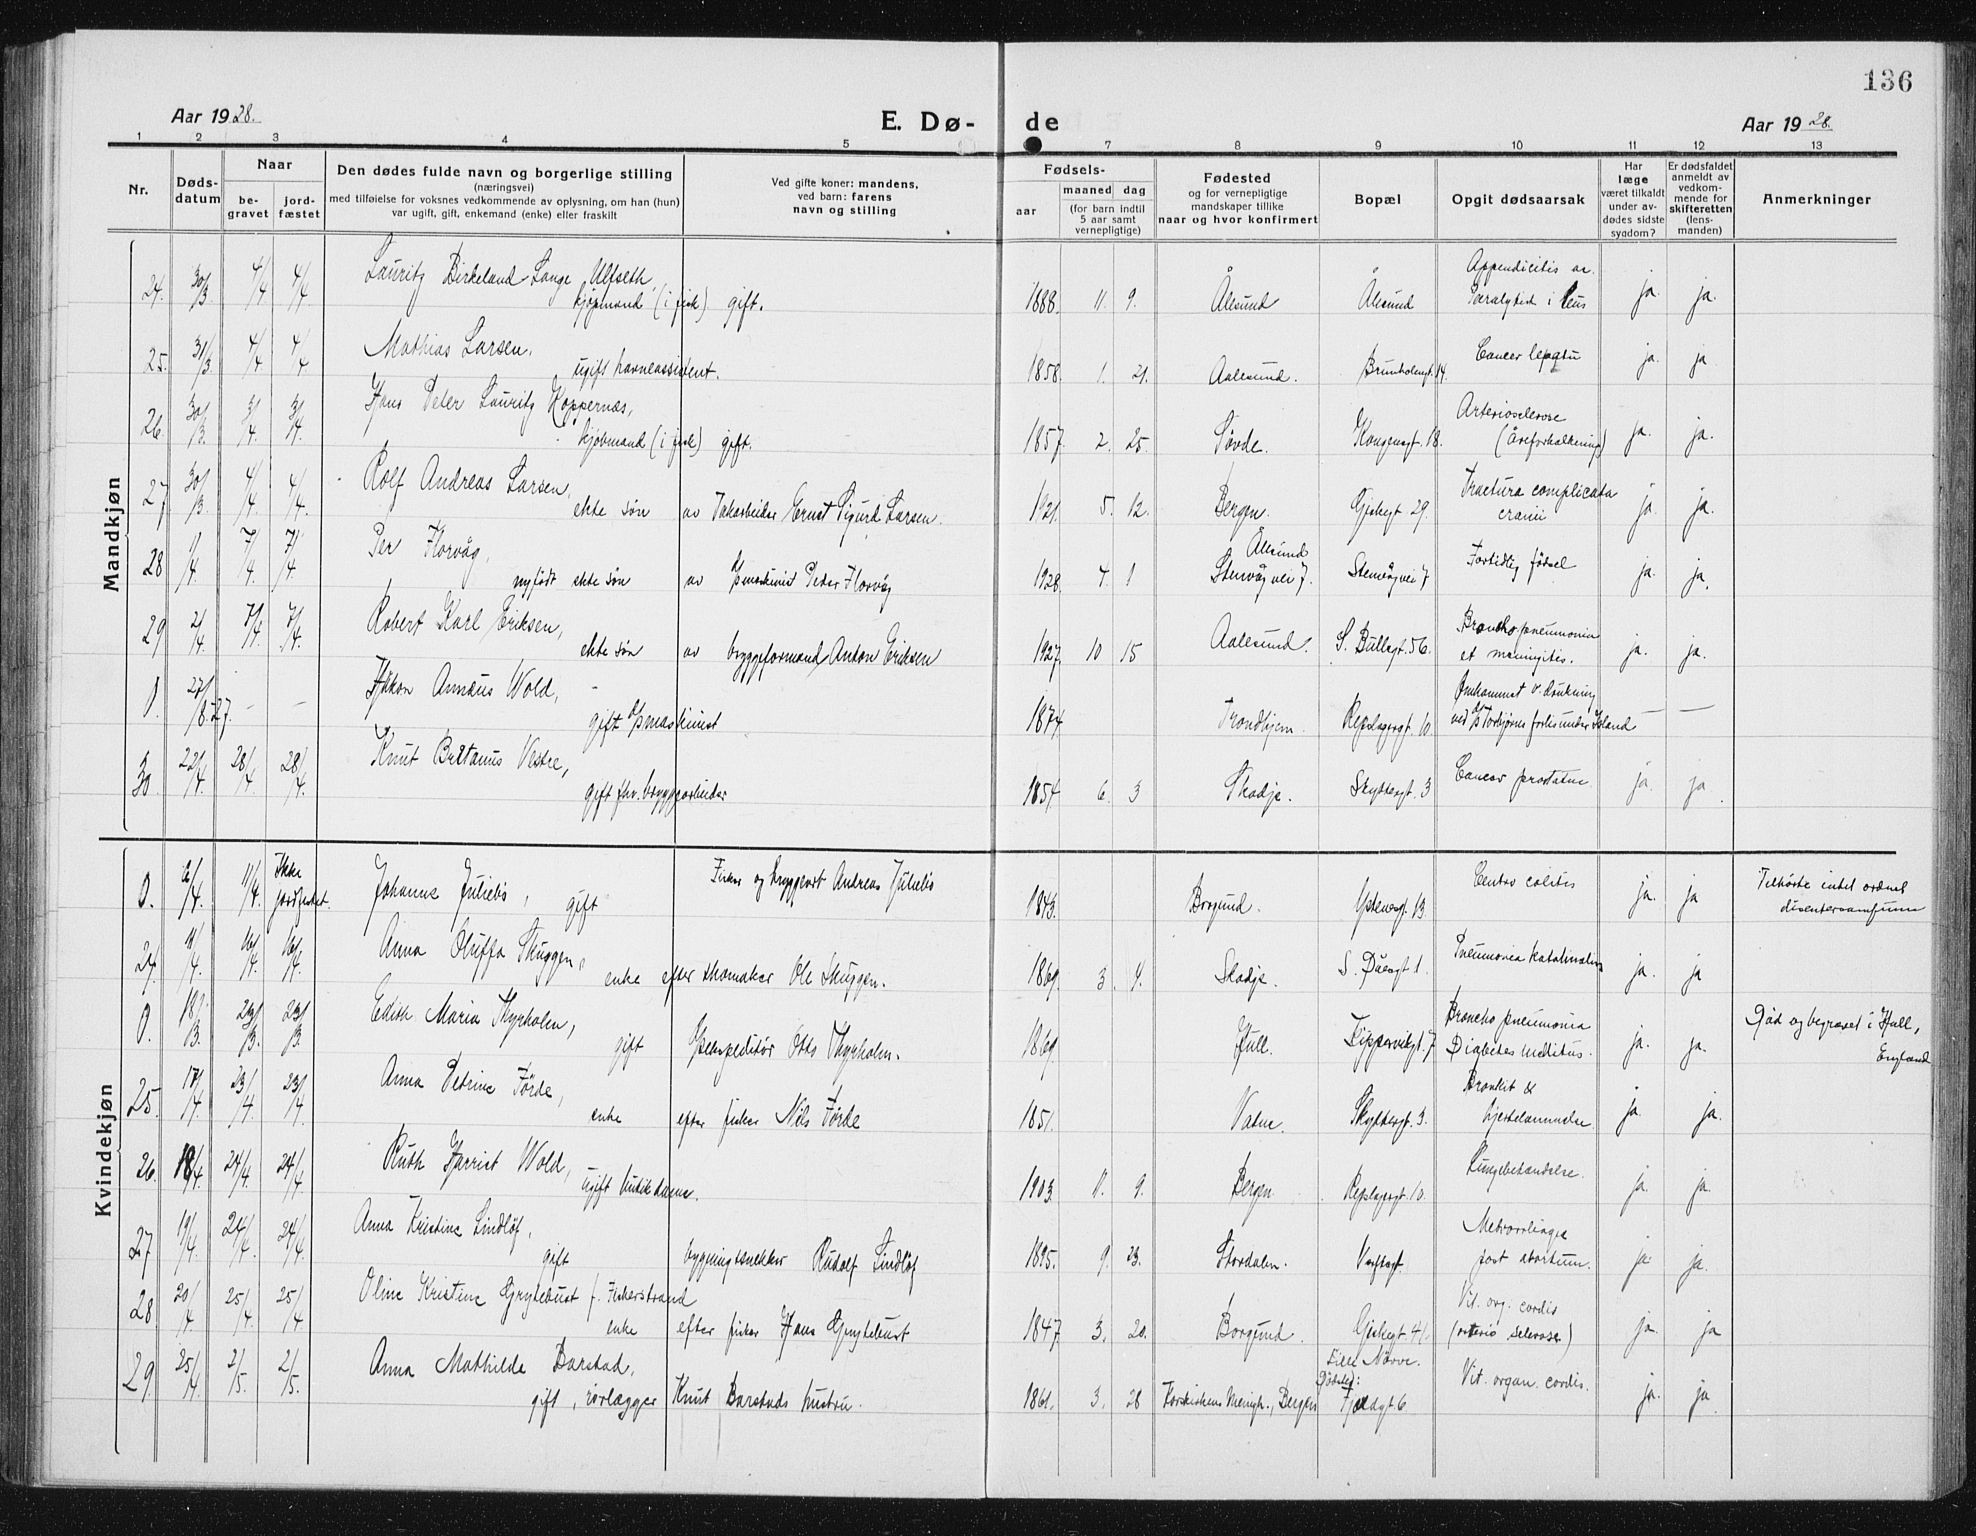 136
Aar 1928.
E. Dø-
de
Aar 1928.
1 2 3 4 5 7 8 9 10 11 12 13
Nr.
Døds-
datum
Naar
be-
gravet
jord-
fæstet
Den dødes fulde navn og borgerlige stilling
(næringsvei)
med tilføielse for voksnes vedkommende av oplysning, om han (hun)
var ugift, gift, enkemand (enke) eller fraskilt
Ved gifte koner: mandens,
ved barn: farens
navn og stilling
Fødsels-
aar
maaned
dag
(for barn indtil
5 aar samt
vernepligtige)
Fødested
og for vernepligtige
mandskaper tillike
naar og hvor konfirmert
Bopæl
Opgit dødsaarsak
Har
læge
været tilkaldt
under av-
dødes sidste
sygdom?
Er dødsfaldet
anmeldt av
vedkom-
mende for
skifteretten
(lens-
manden)
Anmerkninger
Mandkjøn
24. 30/3 4/4 4/4 Lauritz Birkeland Lange Ulfseth,
kjøpmand (i fisk) gift. 1888. 11. 9. Ålesund Ålesund Appendicitis ac.
Paralytisk ileus ja. ja.
25. 31/3 4/4 4/4 Mathias Larsen,
ugift havneassistent. 1858. 1. 21. Aalesund. Brunholmgt. 14. Cancer ja. ja
26. 30/3 3/4 3/4 Hans Peter Lauritz Koppernæs,
kjøbmand (i fisk) gift. 1857. 2. 25. Søvde. Kongensgt. 18. Arteriosclerose
(Åreforkalkning) ja. ja.
27 30/3 4/4 4/4 Rolf Andreas Larsen,
ekte søn av Ernst Sigurd Larsen. 1921. 5. 12. Bergen. Giskegt 29. Fractura complicata
cranii ja. ja.
28 1/4 7/4 7/4 Per Florvåg,
nyfødt ekte søn av Peder Florvåg 1928. 4. 1 Ålesund
Stenvågvei 7. Stenvågvei 7 Fortidlig fødsel ja. ja.
29 2/4 7/4 7/4 Robert Karl Eriksen,
ekte søn av bryggeformand Anton Eriksen 1927 10 15 Aalesund. S. Bullsgt. 56. Broncho pneumonia
et meningitis. ja. ja.
0. 27/8-27. – – Håkon Annæus Wold,
gift D/smaskinist 1874. Trondhjem. Repslagergt 10 Omkommet v. drukning
ved D/S Torbjørns forlis under Island – –
30 22/4 28/4 28/4 Knut Britanus Vestre,
gift fhv. bryggearbeider 1854 6. 3 Skodje. Skyttergt. 3 Cancer prostatae ja. ja.
Kvindekjøn
0. 6/4 11/4 Ikke
jordfestet. Johanne Juliebø, gift Fisker og Andreas Juliebø 1843. Borgund. Ystenesgt. 13. Centro colitis ja. ja Tilhørte intet ordnet
dissentersamfunn
24. 11/4 16/4 16/4 Anna Oluffa Skuggen,
enke efter skomaker Ole Skuggen. 1869. 3. 4. Skodje. S. Daaesgt 1. Pneumonia katarrhalis ja. ja
0. 18/3. 23/3. 23/3 Edith Maria Thyrholm,
gift Otto Thyrholm. 1869. Hull. Tippervikgt. 7 Broncho pneumonia
Diabetes mellitus. ja. ja. Død og begravet i Hull,
England
25. 17/4. 23/4 23/4 Anna Petrine Førde,
enke efter fisker Nils Førde 1851. Vatne. Skyttergt. 3. Bronkit &
hjertelammelse. ja. ja.
26. 18/4 24/4. 24/4 Ruth Harriet Wold,
ugift butikdame. 1903. 11. 9. Bergen Repslagergt. 10. Lungebetændelse. ja. ja.
27 19/4 24/4. 24/4. Anna Kristine Lindløf,
gift bygningssnekker Rudolf Lindløf 1895. 9. 23. Stordalen. Verftsgt. Metrorrhagia
post abortum. ja ja.
28 20/4 25/4. 25/4 Oline Kristine Grytebust f. Fiskerstrand
enke efter fisker Hans Grytebust 1847 3. 20. Borgund. Giskegt. 41. Vit. org. cordis
(arterio sclerose) ja. ja
29. 25/4 2/5. 2/5. Anna Mathilde Barstad,
gift, rørlægger Knut Barstads hustru. 1861. 3. 28 Korskirkens Menigh., Bergen Lille Nørve.
Dødsted:
Fjeldgt 6 Vit. organ. cordis. ja. ja